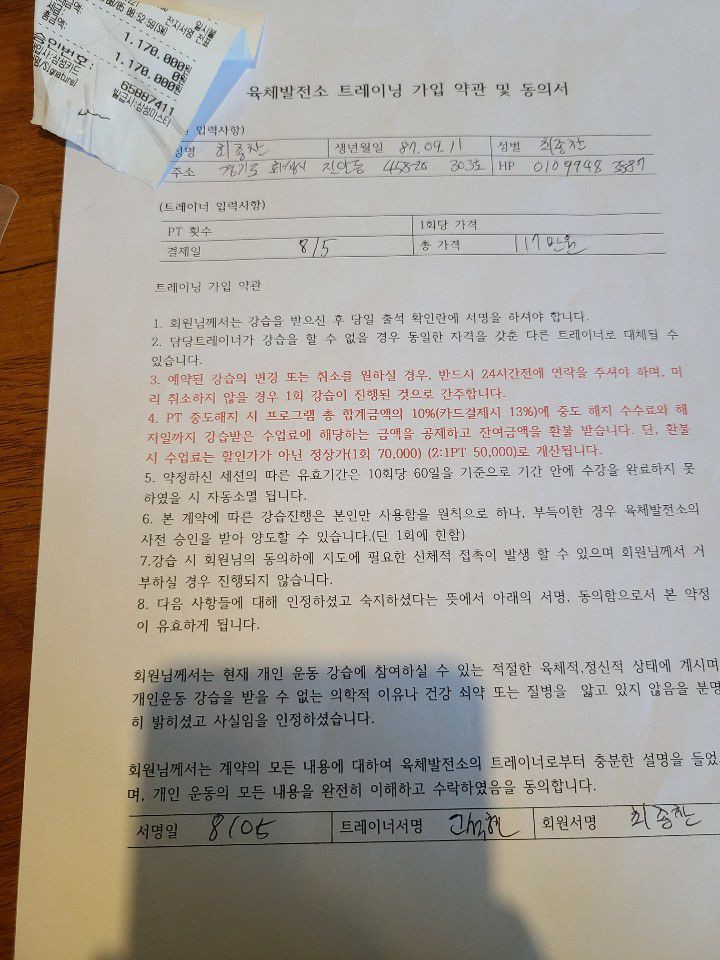 일시불
전자서명 전표
1,170,000원
0원
1,170,000원
승인번호: 65087411
/Signature)
육체발전소 트레이닝 가입 약관 및 동의서
입력사항)
성명 최종찬 생년월일 87.09.11 성별 최종찬
주소 경기도 화성시 진안동 458-20 303호 HP 010 9948 3587
(트레이너 입력사항)
PT 횟수 1회당 가격
결제일 8/5 총 가격 117만원
트레이닝 가입 약관
1. 회원님께서는 강습을 받으신 후 당일 출석 확인란에 서명을 하셔야 합니다.
2. 담당트레이너가 강습을 할 수 없을 경우 동일한 자격을 갖춘 다른 트레이너로 대체될 수
있습니다.
3. 예약된 강습의 변경 또는 취소를 원하실 경우, 반드시 24시간전에 연락을 주셔야 하며, 미
리 취소하지 않을 경우 1회 강습이 진행된 것으로 간주합니다.
4. PT 중도해지 시 프로그램 총 합계금액의 10%(카드결제시 13%)에 중도 해지 수수료와 해
지일까지 강습받은 수업료에 해당하는 금액을 공제하고 잔여금액을 환불 받습니다. 단, 환불
시 수업료는 할인가가 아닌 정상가(1회 70,000) (2:1PT 50,000)로 계산됩니다.
5. 약정하신 세션의 따른 유효기간은 10회당 60일을 기준으로 기간 안에 수강을 완료하지 못
하였을 시 자동소멸 됩니다.
6. 본 계약에 따른 강습진행은 본인만 사용함을 원칙으로 하나, 부득이한 경우 육체발전소의
사전 승인을 받아 양도할 수 있습니다.(단 1회에 한함)
7.강습 시 회원님의 동의하에 지도에 필요한 신체적 접촉이 발생 할 수 있으며 회원님께서 거
부하실 경우 진행되지 않습니다.
8. 다음 사항들에 대해 인정하셨고 숙지하셨다는 뜻에서 아래의 서명, 동의함으로서 본 약정
이 유효하게 됩니다.
회원님께서는 현재 개인 운동 강습에 참여하실 수 있는 적절한 육체적,정신적 상태에 계시며
개인운동 강습을 받을 수 없는 의학적 이유나 건강 쇠약 또는 질병을 앓고 있지 않음을 분명
히 밝히셨고 사실임을 인정하셨습니다.
회원님께서는 계약의 모든 내용에 대하여 육체발전소의 트레이너로부터 충분한 설명을 들었으
며, 개인 운동의 모든 내용을 완전히 이해하고 수락하였음을 동의합니다.
서명일 8/05 트레이너서명 회원서명 최종찬